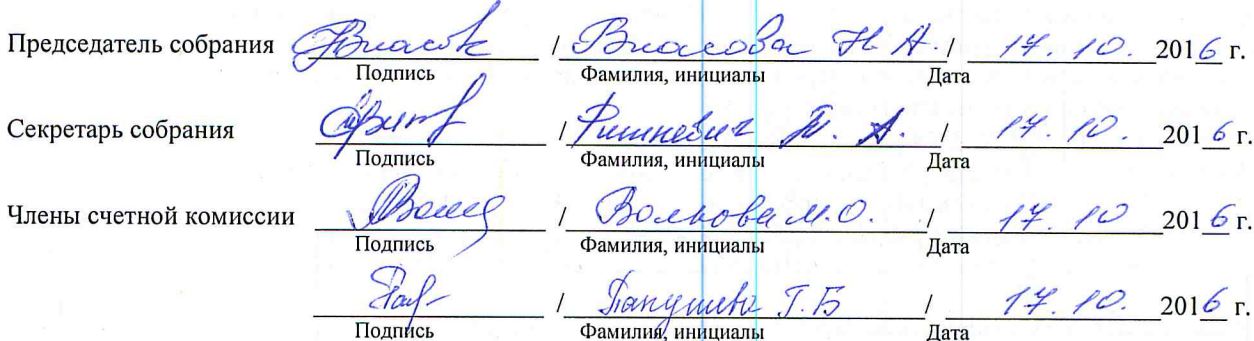 Председатель собрания / Власова Н. А. / 17.10. 2016 г.
Подпись Фамилия, инициалы Дата
Секретарь собрания / Ришкевич Т. А. / 17.10. 2016 г.
Подпись Фамилия, инициалы Дата
Члены счетной комиссии / Волкова М.О. / 17.10 2016 г.
Подпись Фамилия, инициалы Дата
/ Г.Б / 17.10. 2016 г.
Подпись Фамилия, инициалы Дата